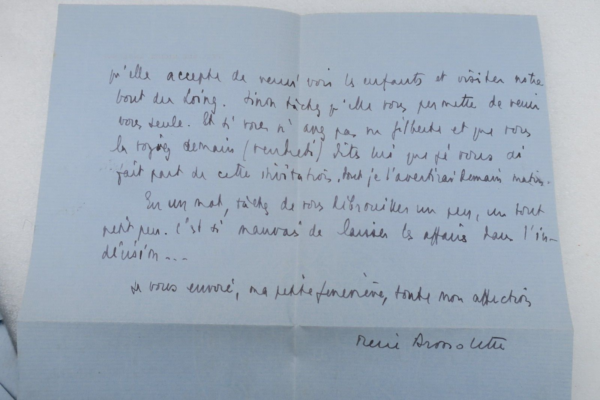 qu'elle accepte de venir voir les enfants et visiter notre
bout du Loing. Sinon tâchez qu'elle vous permette de venir
vous seule. Et si vous n'avez pas vu Gilberte et que vous
la voyez demain (vendredi) dites lui que je vous ai
fait part de cette invitation, dont je l'avertirai demain matin.
En un mot, tâchez de vous débrouiller un peu, un tout
petit peu. C'est si mauvais de laisser les affaires dans l'in-
décision ---
Je vous envoie, ma petite Geneviève, toute mon affection